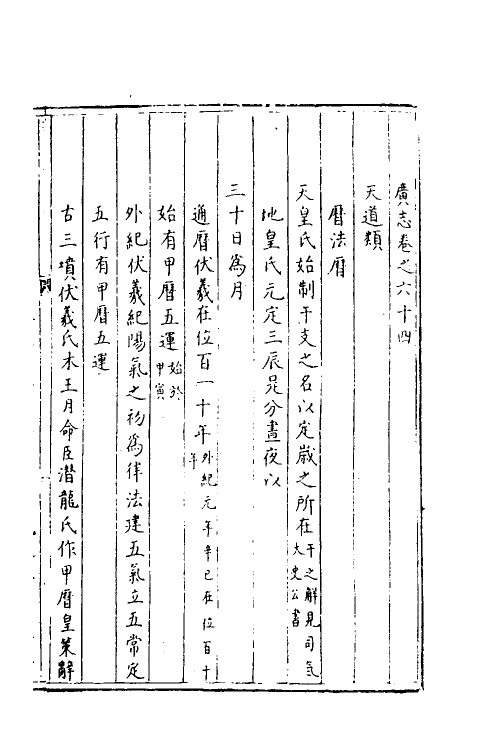 廣志卷之六十四
天道類
曆法曆
天皇氏始制干支之名以定歲之所在干之解見司氣大史公書
地皇氏元定三辰是分晝夜以
三十日為月
通曆伏羲在位百一十年外紀元年辛巳在位百十年
始有甲曆五運始於甲寅
外紀伏羲紀陽氣之初為律法建五氣立五常定
五行有甲曆五運
古三墳伏羲氏木王月命臣潛龍氏作甲曆皇策辭